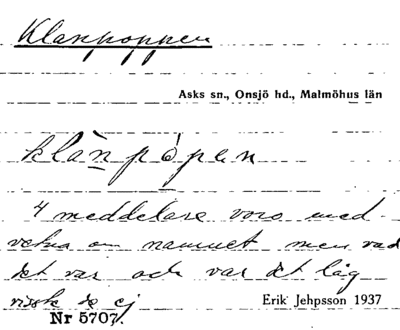 Klanpoppen
Asks sn., Onsjö hd., Malmöhus län
klànpòpen
4 meddelare voro med-
vetna om namnet men vad
det var och var det låg
visste de ej
Erik Jehpsson 1937
Nr 5707.